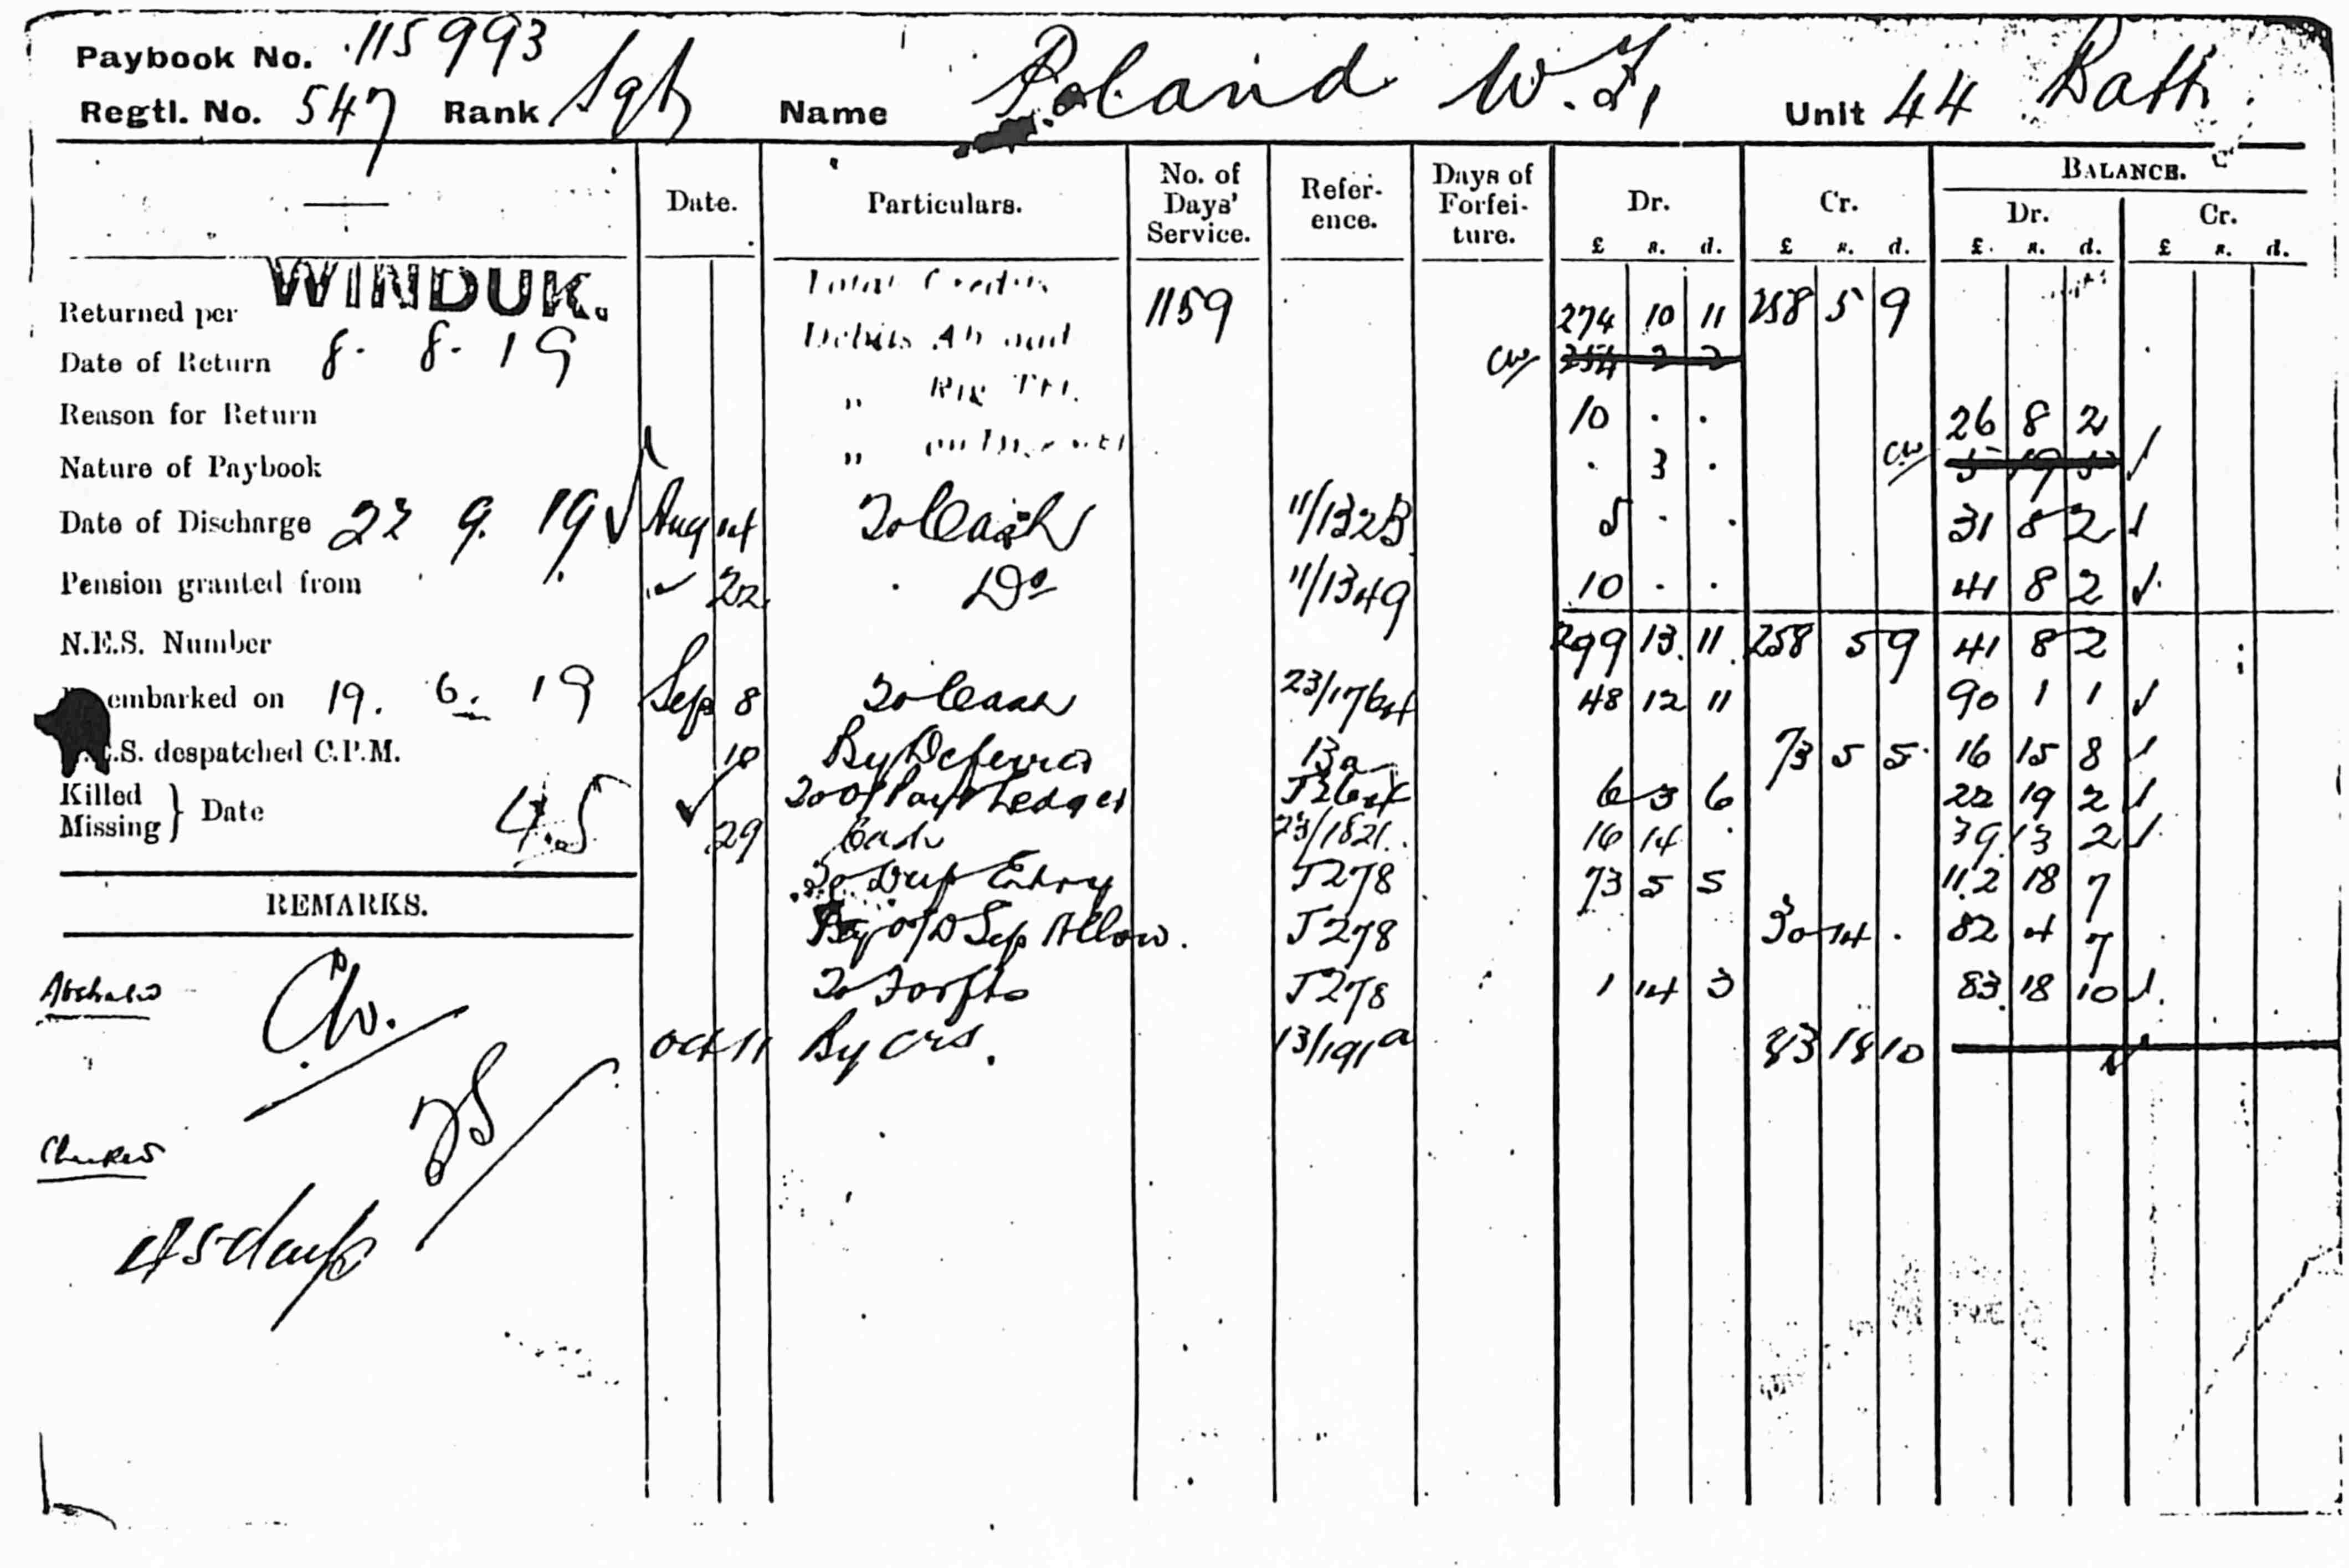 Paybook No. 115993
Regtl. No. 547 Rank Sgt Name Poland W.F. Unit 44 Batt.
Date. Particulars. No. of Days' Service. Refer- ence. Days of Forfei- ture. Dr. Cr. BALANCE.
Dr. Cr.
£ s. d. £ s. d. £ s. d. £ s. d.
Returned per WINDUK.
Date of Return 8. 8. 19
Reason for Return
Nature of Paybook
Date of Discharge 22 9. 19
Pension granted from
N.E.S. Number
embarked on 19. 6. 19
.S. despatched C.P.M.
Killed
Missing } Date 45
REMARKS.
Cw.
Checked
45 days
Total Credits 1159 274 10 11 258 5 9
Debits Abroad Cw 254 2 2
„ 10 . . 26 8 2
„ . 3 . Cw
Aug 14 To Cash 11/132B 5 . . 31 8 2
" 22 Do 11/1349 10 . . 41 8 2
299 13 11 258 5 9 41 8 2
Sep 8 To Cash 48 12 11 90 1 1
18 By Deferred 13a 73 5 5 16 15 8
To O/Paym Ledger 6 3 6 22 19 2
29 Cash 23/1821 16 14 . 39 13 2
To Dup Entry J278 73 5 5 112 18 7
By O/D Sep Allow. J278 30 14 . 82 4 7
To Forfts J278 1 14 3 83 18 10
Oct 11 By CRS. 13/191a 83 18 10